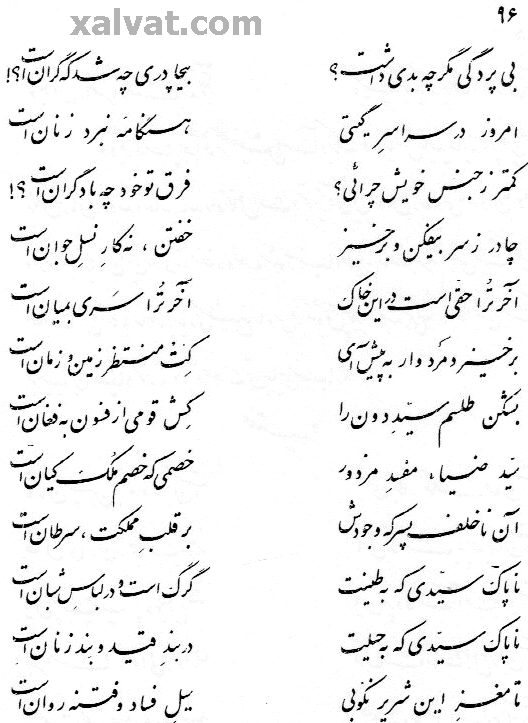 ۹۶
xalvat.com
بی پردگی مگر چه بدی داشت؟ بیچادری چه شد که گران است؟!
امروز در سراسر گیتی هنگامه نبرد زنان است
کمتر ز جنس خویش چرائی؟ فرق تو خود چه با دگران است؟!
چادر ز سر بیفکن و برخیز خفتن، نه کارِ نسلِ جوان است
آخر تُرا حقی است در این خاک آخر تُرا سری بمیان است
برخیز و مَردوار به پیش آی کِت منتظر زمین و زمان است
بشکن طلسم سیّدِ دون را کِش قومی از فنون به فغان است
سیّد ضیاء، مفسدِ مزدور خصمی که خصم مُلک کیان است
آن ناخلف پسر که وجودش بر قلبِ مملکت، سرطان است
ناپاک سیّدی که به طینت گرگ است و در لباسِ شبان است
ناپاک سیّدی که به حیلت در بندِ قید و بند زنان است
تا مغز این شریر نکوبی سیل فساد و فتنه روان است